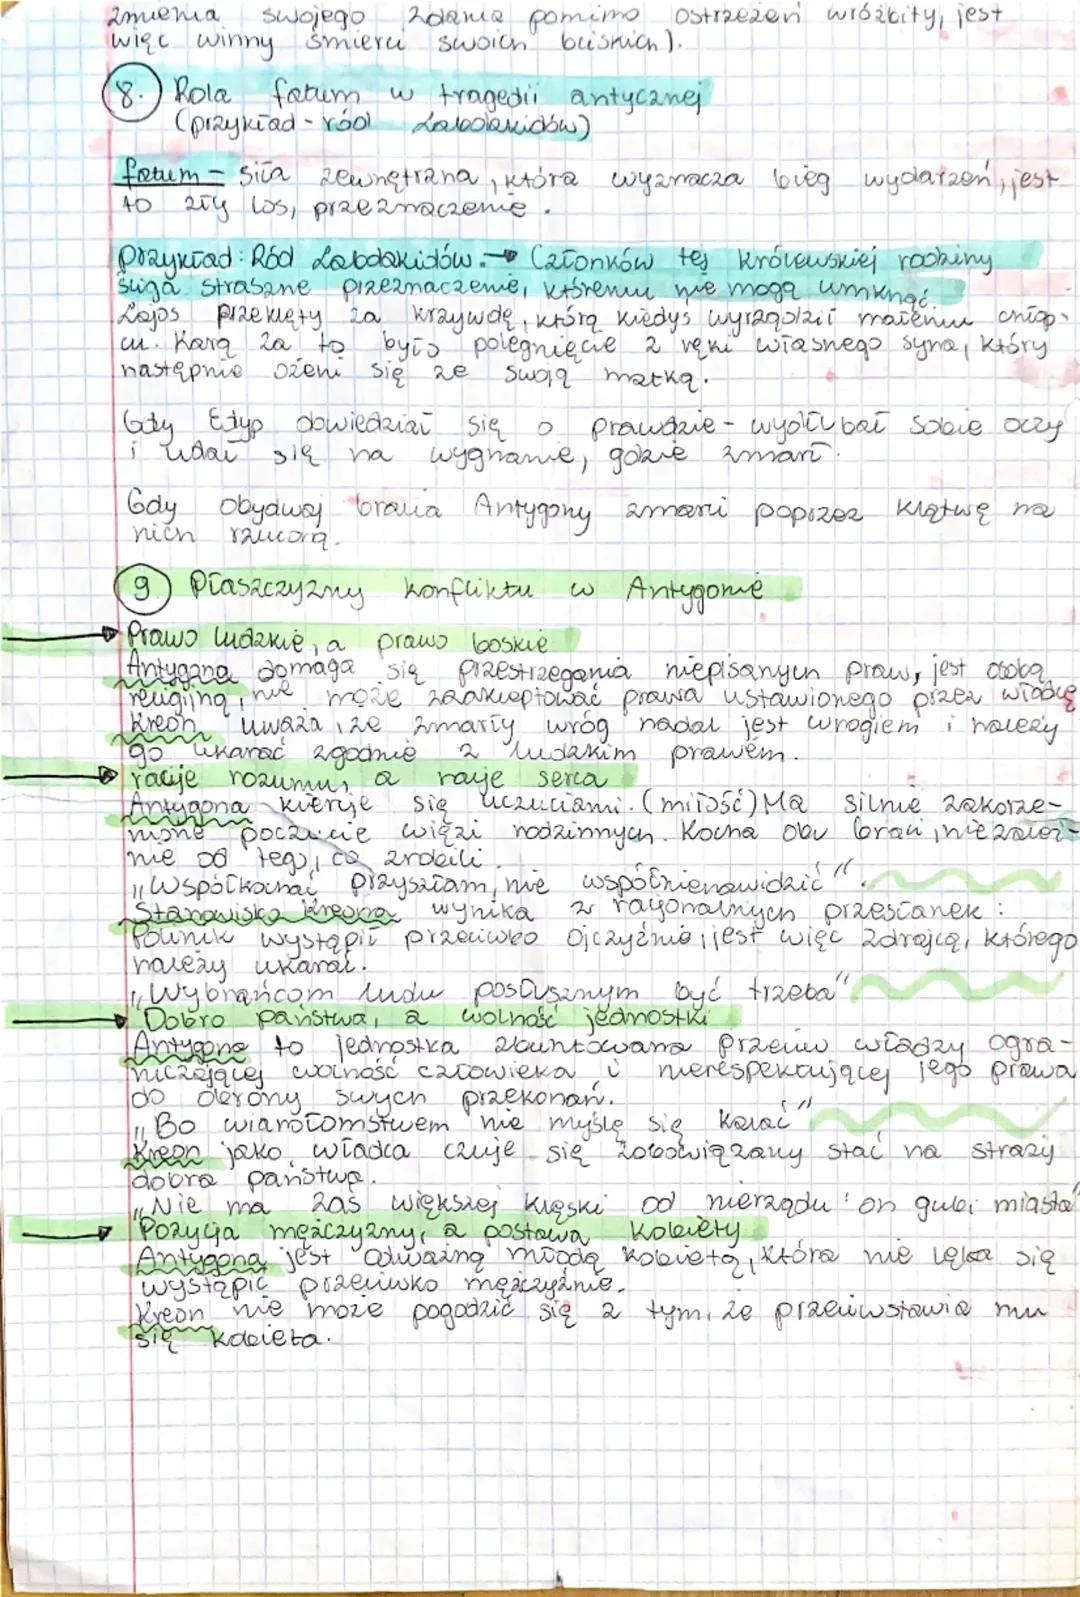 zmienia swojego zdania pomimo ostrzeżeń wróżbity, jest
więc winny śmierci swoich bliskich).
8. Rola fatum w tragedii antycznej
(przykład - ród Labdakidów)
fatum - siła zewnętrzna, która wyznacza bieg wydarzeń, jest
to zły los, przeznaczenie.
Przykład: Ród Labdakidów. → Członków tej królewskiej rodziny
ściga straszne przeznaczenie, któremu nie mogą umknąć.
Lajos przeklęty za krzywdę, którą kiedyś wyrządził małemu chłop-
cu. Karą za to było polegnięcie z ręki własnego syna, który
następnie ożeni się ze swoją matką.
Gdy Edyp dowiedział się o prawdzie - wydłubał sobie oczy
i udał się na wygnanie, gdzie zmarł.
Gdy obydwaj bracia Antygony zmarli poprzez klątwę na
nich rzuconą.
9 Płaszczyzny konfliktu w Antygonie
→ Prawo ludzkie, a prawo boskie
Antygona domaga się przestrzegania niepisanych praw, jest osobą
religijną, nie może zaakceptować prawa ustawionego przez władcę
Kreon uważa, że zmarły wróg nadal jest wrogiem i należy
go ukarać zgodnie z ludzkim prawem.
→ racje rozumu, a racje serca
Antygona kieruje się uczuciami. (miłość) Ma silnie zakorze-
nione poczucie więzi rodzinnych. Kocha obu braci, niezależ-
nie od tego, co zrobili.
"Współkochać przyszłam, nie współnienawidzić".
Stanowisko Kreona wynika z racjonalnych przesłanek:
Polinik wystąpił przeciwko ojczyźnie, jest więc zdrajcą, którego
należy ukarać.
"Wybrańcom ludu posłusznym być trzeba"
→ Dobro państwa, a wolność jednostki
Antygona to jednostka zbuntowana przeciw władzy ogra-
niczającej wolność człowieka i nierespektującej jego prawa
do obrony swych przekonań.
"Bo wiarołomstwem nie myślę się kalać"
Kreon jako władca czuje się zobowiązany stać na straży
dobra państwa.
"Nie ma zaś większej klęski od nierządu: on gubi miasta"
→ Pozycja mężczyzny, a postawa kobiety
Antygona jest odważną młodą kobietą, która nie lęka się
wystąpić przeciwko mężczyźnie.
Kreon nie może pogodzić się z tym, że przeciwstawia mu
się kobieta.